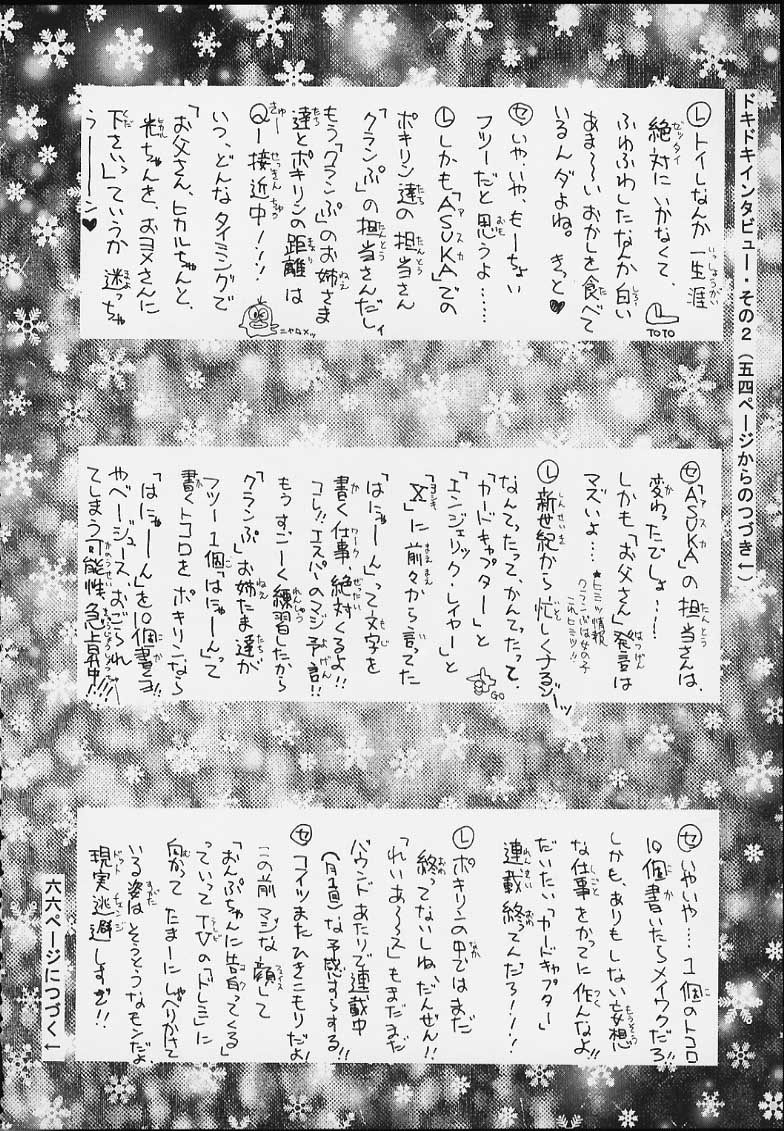 ドキドキインタビュー・その2（五四ページからのつづき↓）
Ⓛトイレなんか一生涯
絶対にいかなくて、
ふわふわしたなんか白い
あま～～いおかしを食べて
いるんダよね。きっと♥
TOTO
㋝いやいや、もーちょい
フツーだと思うよ……
Ⓛしかも「ASUKA」での
ポキリン達の担当さん
「クランぷ」の担当さんだしィ
もう「クランぷ」のお姉さま
達とポキリンの距離は
Q─接近中!!!
ニャロメッ
いつ、どんなタイミングで
「お父さん、ヒカルちゃんと、
光ちゃんを、おヨメさんに
下さいっ」ていうか迷っちゃ
うーーーン♥
㋝「ASUKA」の担当さんは、
変わったでしょ……
しかも「お父さん」発言は
マズいよ…
★ヒミツ情報
クランぷは女の子
これヒミツ!!
Ⓛ新世紀から忙しくするゾーッ
なんてったってかんてったって、
GO
「カードキャプター」と
「エンジェリック・レイヤー」と
「X」に前々から言ってた
「はにゃーん」って文字を
書く仕事、絶対くるよ!!
コレ!!エスパーのマジ予言!!
もぅすごーく練習したから
「クランぷ」お姉たま達が
フツー1個「はにゃーん」って
書くトコロをポキリンなら
「はにゃーん」を10個書くヨ!!
やべージュース、おごられ
てしまう可能性、急上昇中!!!
㋝いやいや…1個のトコロ
10個書いたらメイワクだろ!!
しかも、ありもしない妄想
な仕事をかってに作んなよ!!
だいたい「カードキャプター」
連載終ってんだろ!!!
Ⓛポキリンの中ではまだ
終ってないしね、だんぜん!!
「れいあ～～ス」もまだまだ
バウンドあたりで連載中
(月1回)な予感すらする!!
㋝コイツまたひきこもりだよ!
この前マジな顔して
「おんぷちゃんに告ってくる」
っていってTVの「ドレミ」に
向かってたまーにしゃべりかけて
いる姿はそうとうなモンだよ
現実逃避しすぎ!!
六六ページにつづく↓